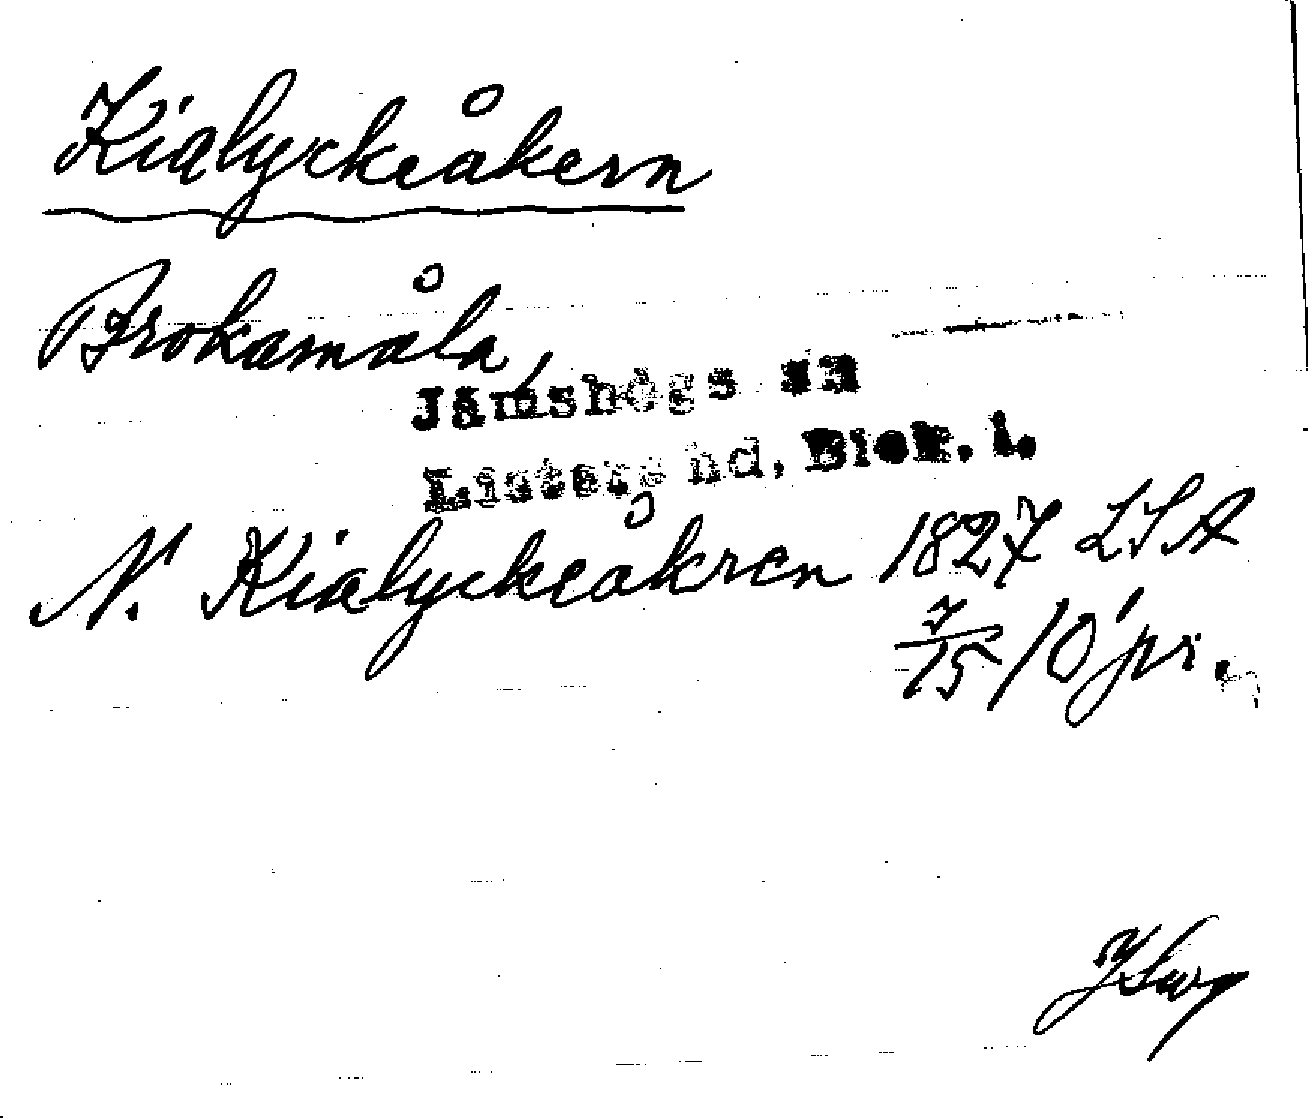 Kialyckeåkern
Brokamåla,
Jämshögs sn
Listers hd, Blek. l.
N. Kialyckeåkren 1827 LSA
7/15 / 10 pr.